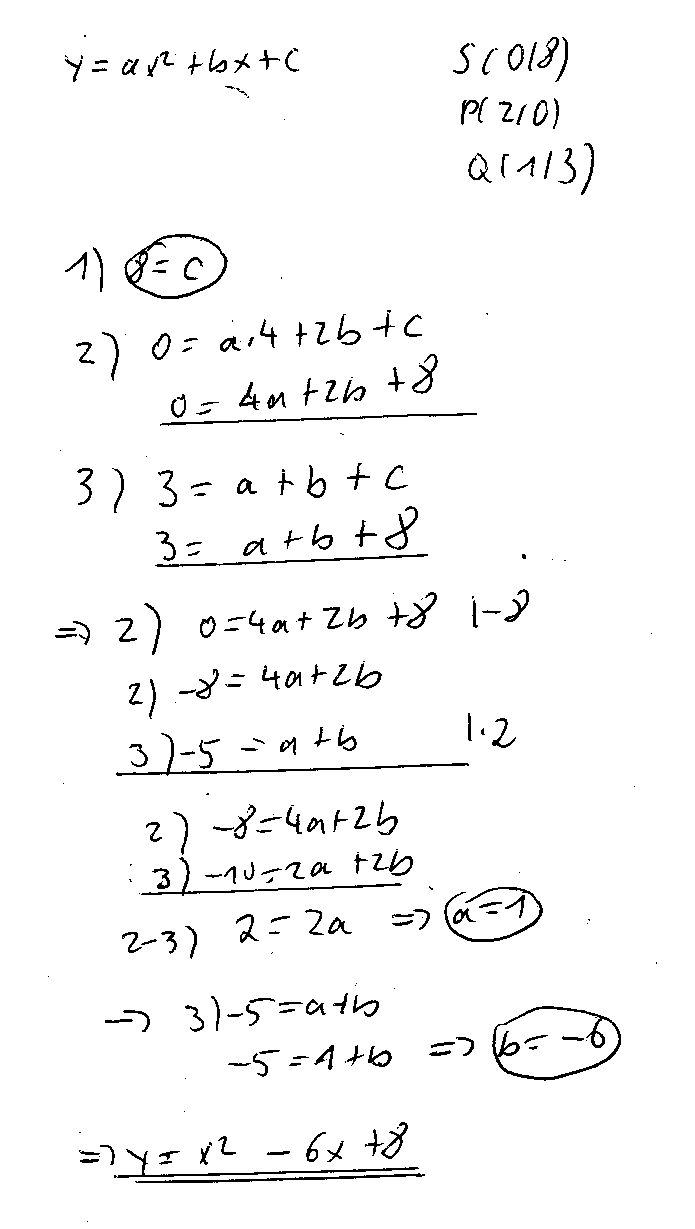 y = ax² + bx + c
S(0|8)
P(2|0)
Q(1|3)
1) 8 = c
2) 0 = a·4 + 2b + c
0 = 4a + 2b + 8
3) 3 = a + b + c
3 = a + b + 8
=> 2) 0 = 4a + 2b + 8 |-8
2) -8 = 4a + 2b
3) -5 = a + b |·2
2) -8 = 4a + 2b
3) -10 = 2a + 2b
2-3) 2 = 2a => a = 1
-> 3) -5 = a + b
-5 = 1 + b => b = -6
=> y = x² - 6x + 8